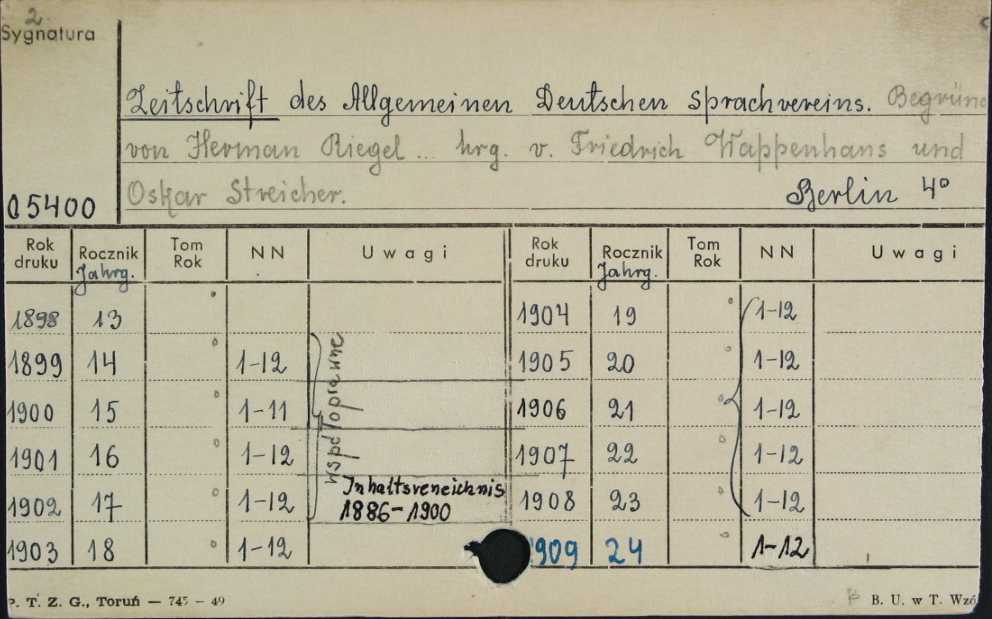 2
Sygnatura
Zeitschrift des Allgemeinen Deutschen Sprachvereins. Begründ
von Herman Riegel... hrg. v. Friedrich Wappenhans und
Oskar Streicher. Berlin 4°
05400
Rok druku Rocznik Jahrg. Tom Rok NN Uwagi Rok druku Rocznik Jahrg. Tom Rok NN Uwagi
1898 13 1904 19 1-12
1899 14 1-12 1905 20 1-12
1900 15 1-11 1906 21 1-12
1901 16 1-12 1907 22 1-12
współoprawne
Inhaltsveneichnis
1902 17 1-12 1886-1900 1908 23 1-12
1903 18 1-12 1909 24 1-12
P. T. Z. G., Toruń — 745 — 49 B. U. w T. Wzó